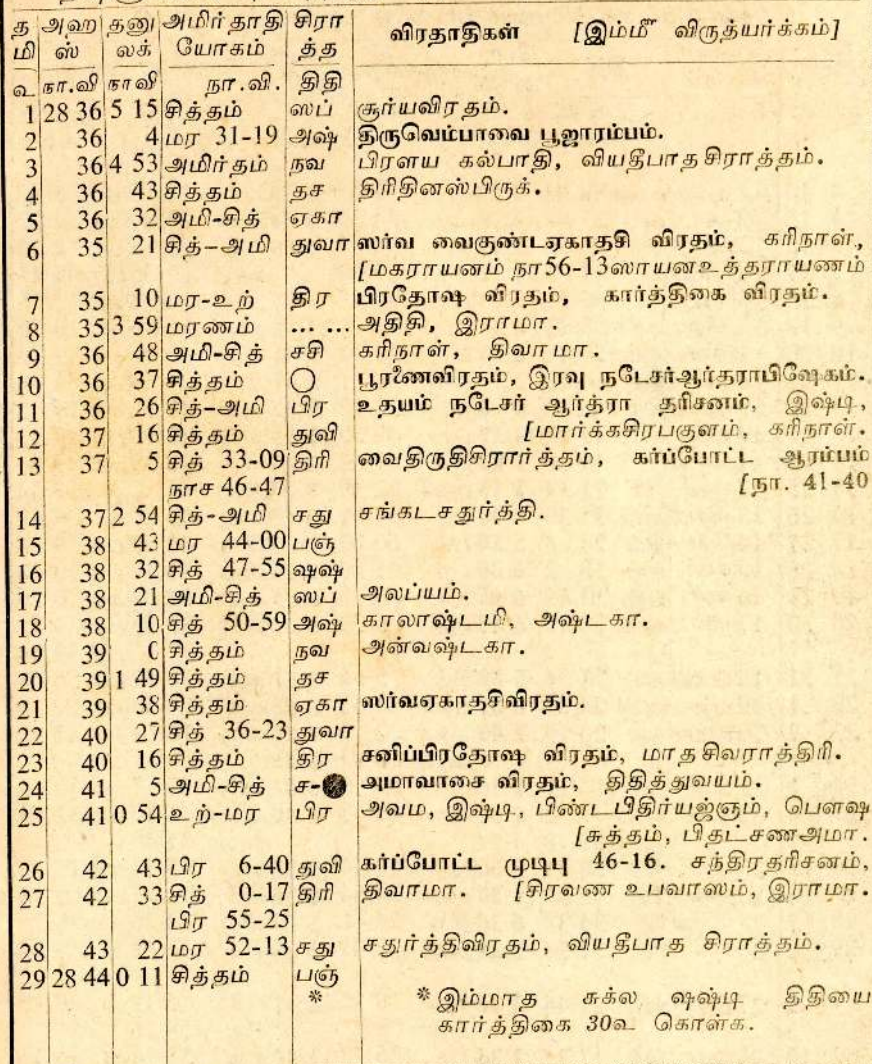 த அஹ தனு அமிர்தாதி சிரா விரதாதிகள் [இம்மீ விருத்யர்க்கம்]
மி ஸ் லக் யோகம் த்த
உ நா.வி நாவி நா.வி. திதி
1 28 36 5 15 சித்தம் ஸப் சூர்யவிரதம்.
2 36 4 மர 31-19 அஷ் திருவெம்பாவை பூஜாரம்பம்.
3 36 4 53 அமிர்தம் நவ பிரளய கல்பாதி, வியதீபாதசிராத்தம்.
4 36 43 சித்தம் தச திரிதினஸ்பிருக்.
5 36 32 அமி-சித் ஏகா
6 35 21 சித்-அமி துவா ஸர்வ வைகுண்டஏகாதசி விரதம், கரிநாள்,
[மகராயனம் நா56-13ஸாயனஉத்தராயணம்
7 35 10 மர-உற் திர பிரதோஷ விரதம், கார்த்திகை விரதம்.
8 35 3 59 மரணம் ... ... அதிதி, இராமா.
9 36 48 அமி-சித் சசி கரிநாள், திவாமா.
10 36 37 சித்தம் ○ பூரணைவிரதம், இரவு நடேசர்ஆர்தராபிஷேகம்.
11 36 26 சித்-அமி பிர உதயம் நடேசர் ஆர்த்ரா தரிசனம், இஷ்டி,
12 37 16 சித்தம் துவி [மார்க்கசிரபகுளம், கரிநாள்.
13 37 5 சித் 33-09 திரி வைதிருதிசிரார்த்தம், கர்ப்போட்ட ஆரம்பம்
நாச 46-47 [நா. 41-40
14 37 2 54 சித்-அமி சது சங்கடசதுர்த்தி.
15 38 43 மர 44-00 பஞ்
16 38 32 சித் 47-55 ஷஷ்
17 38 21 அமி-சித் ஸப் அலப்யம்.
18 38 10 சித் 50-59 அஷ் காலாஷ்டமி, அஷ்டகா.
19 39 0 சித்தம் நவ அன்வஷ்டகா.
20 39 1 49 சித்தம் தச
21 39 38 சித்தம் ஏகா ஸர்வஏகாதசிவிரதம்.
22 40 27 சித் 36-23 துவா
23 40 16 சித்தம் திர சனிப்பிரதோஷ விரதம், மாதசிவராத்திரி.
24 41 5 அமி-சித் ச-● அமாவாசை விரதம், திதித்துவயம்.
25 41 0 54 உற்-மர பிர அவம, இஷ்டி, பிண்டபிதிர்யஜ்ஞம், பௌஷ
[சுத்தம், பிதட்சணஅமா.
26 42 43 பிர 6-40 துவி கர்ப்போட்ட முடிபு 46-16. சந்திரதரிசனம்,
27 42 33 சித் 0-17 திரி திவாமா. [சிரவண உபவாஸம், இராமா.
பிர 55-25
28 43 22 மர 52-13 சது சதுர்த்திவிரதம், வியதீபாத சிராத்தம்.
29 28 44 0 11 சித்தம் பஞ்
* * இம்மாத சுக்ல ஷஷ்டி திதியை
கார்த்திகை 30உ கொள்க.